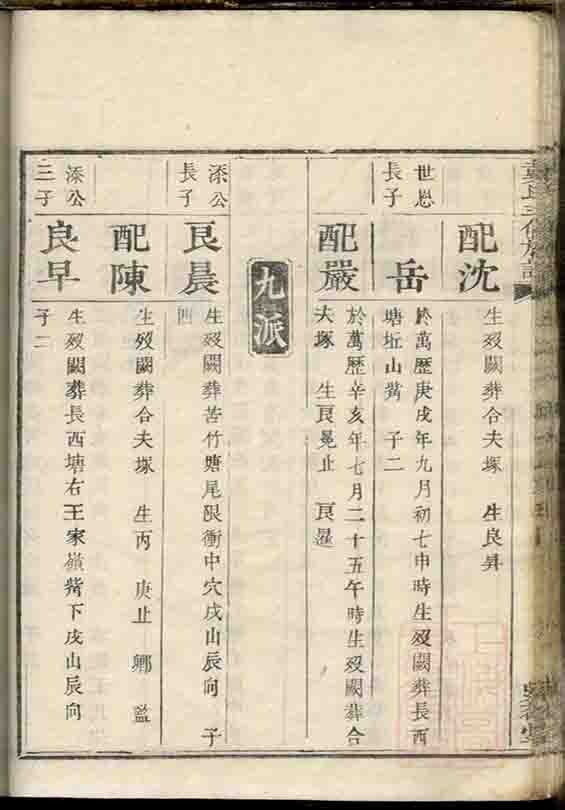 配沈
生歿闕葬合夫塚 生良昇
世恩
長子
岳
於萬歷庚戌年九月初七申時生歿闕葬長西
塘坵山觜 子二
配嚴
於萬歷辛亥年七月二十五午時生歿闕葬合
夫塚 生艮晃止 艮暹
九派
添公
長子
艮晨
生歿闕葬苦竹塘尾限衝中穴戌山辰向 子
四
配陳
生歿闕葬合夫塚 生丙 庚止 卿 監
添公
三子
良早
生歿闕葬長西塘右王家嶺觜下戌山辰向
子二